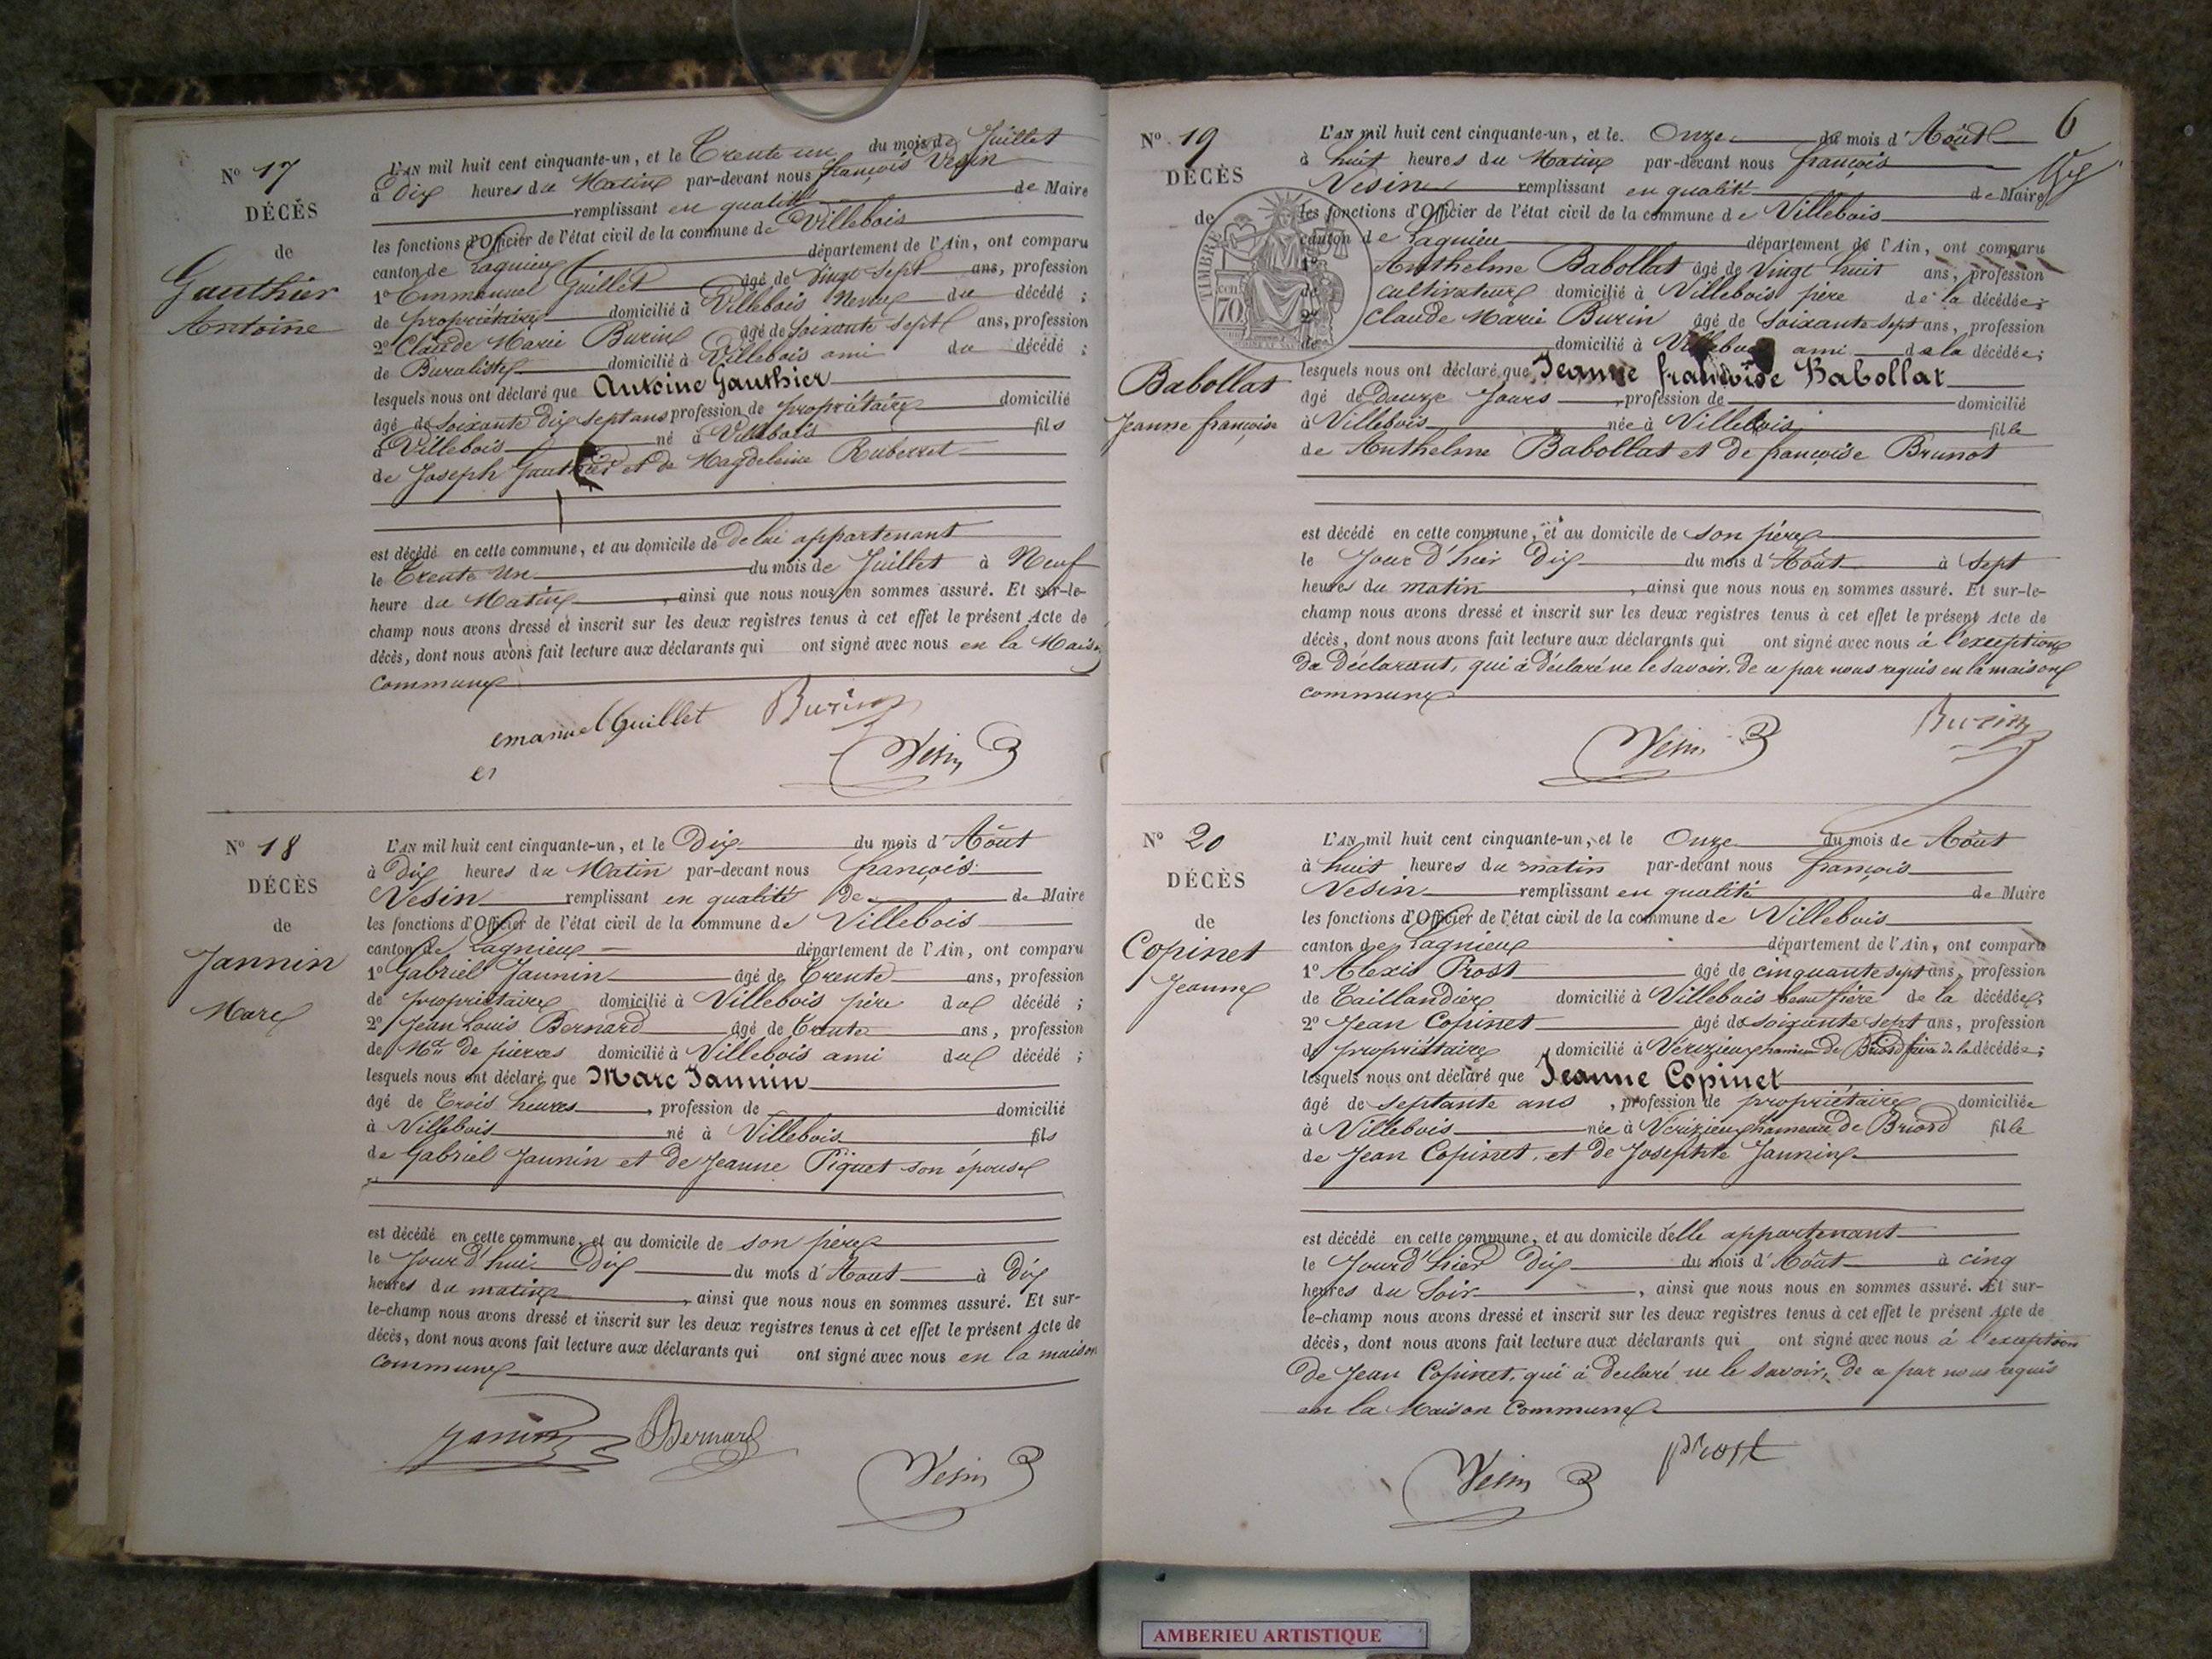 N° 17
DÉCÈS
de
Gauthier
Antoine
L'AN mil huit cent cinquante-un, et le Trente un du mois de Juillet
à Dix heures du Matin par-devant nous françois Vesin
remplissant en qualité de Maire
les fonctions d'Officier de l'état civil de la commune de Villebois
canton de Lagnieu département de l'Ain, ont comparu
1° Emmanuel Guillet âgé de Vingt sept ans, profession
de propriétaire domicilié à Villebois Neveu du décédé ;
2° Claude Marie Burin âgé de Soixante sept ans, profession
de Buraliste domicilié à Villebois ami du décédé ;
lesquels nous ont déclaré que Antoine Gauthier
âgé de Soixante dix sept ans profession de propriétaire domicilié
à Villebois né à Villebois fils
de Joseph Gauthier et de Magdeleine Ruberret
est décédé en cette commune, et au domicile de de lui appartenant
le Trente Un du mois de Juillet à Neuf
heure du Matin, ainsi que nous nous en sommes assuré. Et sur-le-
champ nous avons dressé et inscrit sur les deux registres tenus à cet effet le présent Acte de
décès, dont nous avons fait lecture aux déclarants qui ont signé avec nous en la Maison
commune
emanuel Guillet Burin
Vesin
N° 18
DÉCÈS
de
Jannin
Marc
L'AN mil huit cent cinquante-un, et le Dix du mois d'Août
à Dix heures du Matin par-devant nous françois
Vesin remplissant en qualité de de Maire
les fonctions d'Officier de l'état civil de la commune de Villebois
canton de Lagnieu département de l'Ain, ont comparu
1° Gabriel Jannin âgé de Trente ans, profession
de propriétaire domicilié à Villebois père du décédé ;
2° Jean Louis Bernard âgé de Trente ans, profession
de Md de pierres domicilié à Villebois ami du décédé ;
lesquels nous ont déclaré que Marc Jannin
âgé de Trois heures, profession de domicilié
à Villebois né à Villebois fils
de Gabriel Jannin et de Jeanne Piquet son épouse
est décédé en cette commune, et au domicile de son père
le Jour d'hui Dix du mois d'Aout à Dix
heures du matin, ainsi que nous nous en sommes assuré. Et sur-
le-champ nous avons dressé et inscrit sur les deux registres tenus à cet effet le présent Acte de
décès, dont nous avons fait lecture aux déclarants qui ont signé avec nous en la maison
commune
Janin Bernard
Vesin
6
N° 19
DÉCÈS
de
Babollat
Jeanne françoise
TIMBRE
70 CEN
L'AN mil huit cent cinquante-un, et le Onze du mois d'Août
à huit heures du Matin par-devant nous françois
Vesin remplissant en qualité de Maire
les fonctions d'Officier de l'état civil de la commune de Villebois
canton de Lagnieu département de l'Ain, ont comparu
1° Anthelme Babollat âgé de Vingt huit ans, profession
de cultivateur domicilié à Villebois père de la décédée ;
2° Claude Marie Burin âgé de Soixante sept ans, profession
de domicilié à Villebois ami de la décédée ;
lesquels nous ont déclaré que Jeanne françoise Babollat
âgé de Douze Jours, profession de domicilié
à Villebois née à Villebois fille
de Anthelme Babollat et de françoise Brunot
est décédé en cette commune, et au domicile de son père
le Jour d'hier Dix du mois d'Août à Sept
heures du matin, ainsi que nous nous en sommes assuré. Et sur-le-
champ nous avons dressé et inscrit sur les deux registres tenus à cet effet le présent Acte de
décès, dont nous avons fait lecture aux déclarants qui ont signé avec nous à l'exception
du Déclarant, qui à déclaré ne le savoir, de ce par nous requis en la maison
commune
Vesin Burin
N° 20
DÉCÈS
de
Copinet
Jeanne
L'AN mil huit cent cinquante-un, et le Onze du mois de Août
à huit heures du matin par-devant nous françois
Vesin remplissant en qualité de Maire
les fonctions d'Officier de l'état civil de la commune de Villebois
canton de Lagnieu département de l'Ain, ont comparu
1° Alexis Prost âgé de cinquante sept ans, profession
de Taillandier domicilié à Villebois beau frère de la décédée ;
2° Jean Copinet âgé de soixante sept ans, profession
de propriétaire domicilié à Vérizieu hameau de Briord frère de la décédée ;
lesquels nous ont déclaré que Jeanne Copinet
âgé de septante ans, profession de propriétaire domiciliée
à Villebois née à Vérizieu hameau de Briord fille
de Jean Copinet, et de Josephte Jannin
est décédé en cette commune, et au domicile d'elle appartenant
le Jour d'hier Dix du mois d'Août à cinq
heures du Soir, ainsi que nous nous en sommes assuré. Et sur-
le-champ nous avons dressé et inscrit sur les deux registres tenus à cet effet le présent Acte de
décès, dont nous avons fait lecture aux déclarants qui ont signé avec nous à l'exception
de Jean Copinet, qui à déclaré ne le savoir, de ce par nous requis
en la Maison Commune
Vesin prost
AMBERIEU ARTISTIQUE